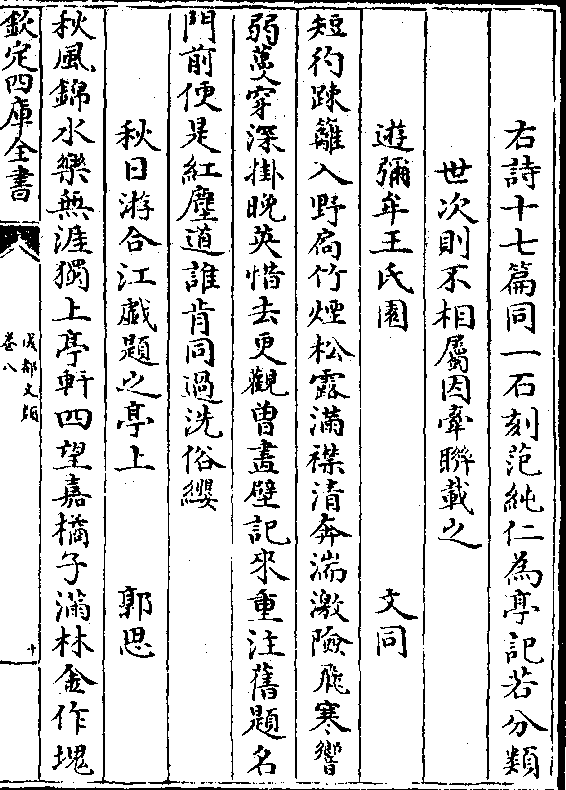 右詩十七篇同一石刻范純仁為亭記若分類
世次則不相屬因牽聨載之
遊彌牟王氏園
文同
短彴踈籬入野扃竹煙松露滿襟清奔湍激險飛寒響
弱蔓穿深掛晚英惜去更觀曽畫壁記來重注舊題名
門前便是紅塵道誰肯同過洗俗纓
秋日游合江戯題之亭上
郭思
秋風錦水樂無涯獨上亭軒四望嘉橘子滿林金作塊
欽定四庫全書
成都文類
卷八
十